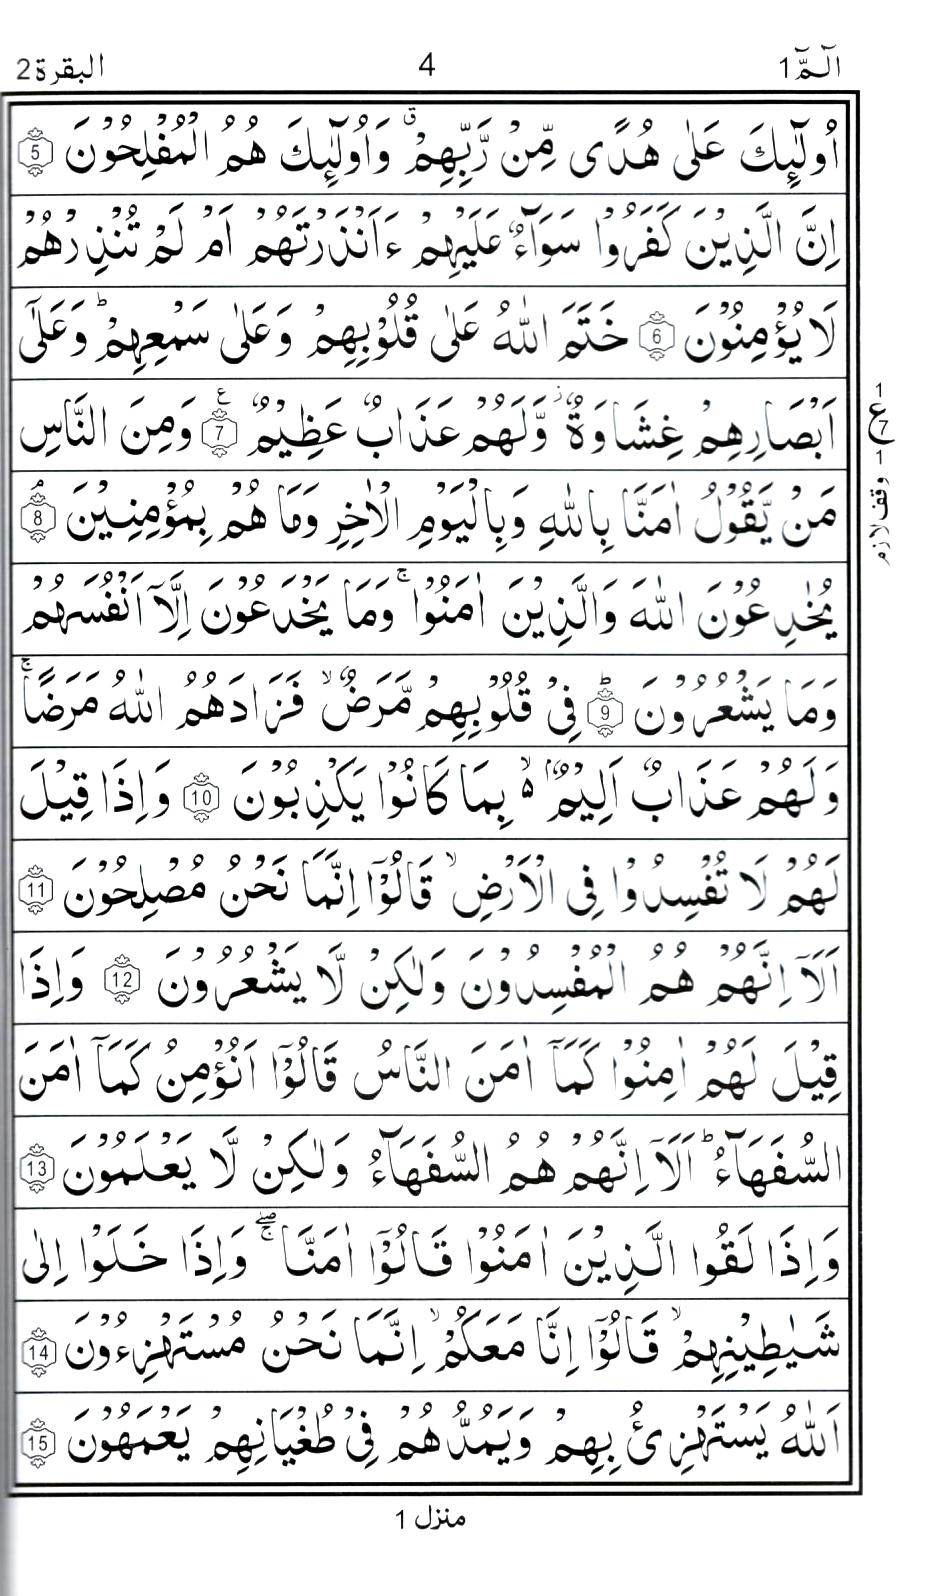 الٓمّٓ 1 4 البقرة 2
اُولٰٓئِكَ عَلٰى هُدًى مِّنْ رَّبِّهِمْ ۗ وَاُولٰٓئِكَ هُمُ الْمُفْلِحُوْنَ 5
اِنَّ الَّذِيْنَ كَفَرُوْا سَوَآءٌ عَلَيْهِمْ ءَاَنْذَرْتَهُمْ اَمْ لَمْ تُنْذِرْهُمْ
لَا يُؤْمِنُوْنَ 6 خَتَمَ اللّٰهُ عَلٰى قُلُوْبِهِمْ وَعَلٰى سَمْعِهِمْ ؕ وَعَلٰٓى
اَبْصَارِهِمْ غِشَاوَةٌ ؗ وَّلَهُمْ عَذَابٌ عَظِيْمٌ 7 ع وَمِنَ النَّاسِ
مَنْ يَّقُوْلُ اٰمَنَّا بِاللّٰهِ وَبِالْيَوْمِ الْاٰخِرِ وَمَا هُمْ بِمُؤْمِنِيْنَ ۘ 8
يُخٰدِعُوْنَ اللّٰهَ وَالَّذِيْنَ اٰمَنُوْا ۚ وَمَا يَخْدَعُوْنَ اِلَّآ اَنْفُسَهُمْ
وَمَا يَشْعُرُوْنَ ؕ 9 فِيْ قُلُوْبِهِمْ مَّرَضٌ ۙ فَزَادَهُمُ اللّٰهُ مَرَضًا ۚ
وَلَهُمْ عَذَابٌ اَلِيْمٌۢ ۙ۬ بِمَا كَانُوْا يَكْذِبُوْنَ 10 وَاِذَا قِيْلَ
لَهُمْ لَا تُفْسِدُوْا فِى الْاَرْضِ ۙ قَالُوْٓا اِنَّمَا نَحْنُ مُصْلِحُوْنَ 11
اَلَآ اِنَّهُمْ هُمُ الْمُفْسِدُوْنَ وَلٰكِنْ لَّا يَشْعُرُوْنَ 12 وَاِذَا
قِيْلَ لَهُمْ اٰمِنُوْا كَمَآ اٰمَنَ النَّاسُ قَالُوْٓا اَنُؤْمِنُ كَمَآ اٰمَنَ
السُّفَهَآءُ ؕ اَلَآ اِنَّهُمْ هُمُ السُّفَهَآءُ وَلٰكِنْ لَّا يَعْلَمُوْنَ 13
وَاِذَا لَقُوا الَّذِيْنَ اٰمَنُوْا قَالُوْٓا اٰمَنَّا ۖۚ وَاِذَا خَلَوْا اِلٰى
شَيٰطِيْنِهِمْ ۙ قَالُوْٓا اِنَّا مَعَكُمْ ۙ اِنَّمَا نَحْنُ مُسْتَهْزِءُوْنَ 14
اَللّٰهُ يَسْتَهْزِئُ بِهِمْ وَيَمُدُّهُمْ فِيْ طُغْيَانِهِمْ يَعْمَهُوْنَ 15
1
ع
7
1
وقف لازم
منزل 1